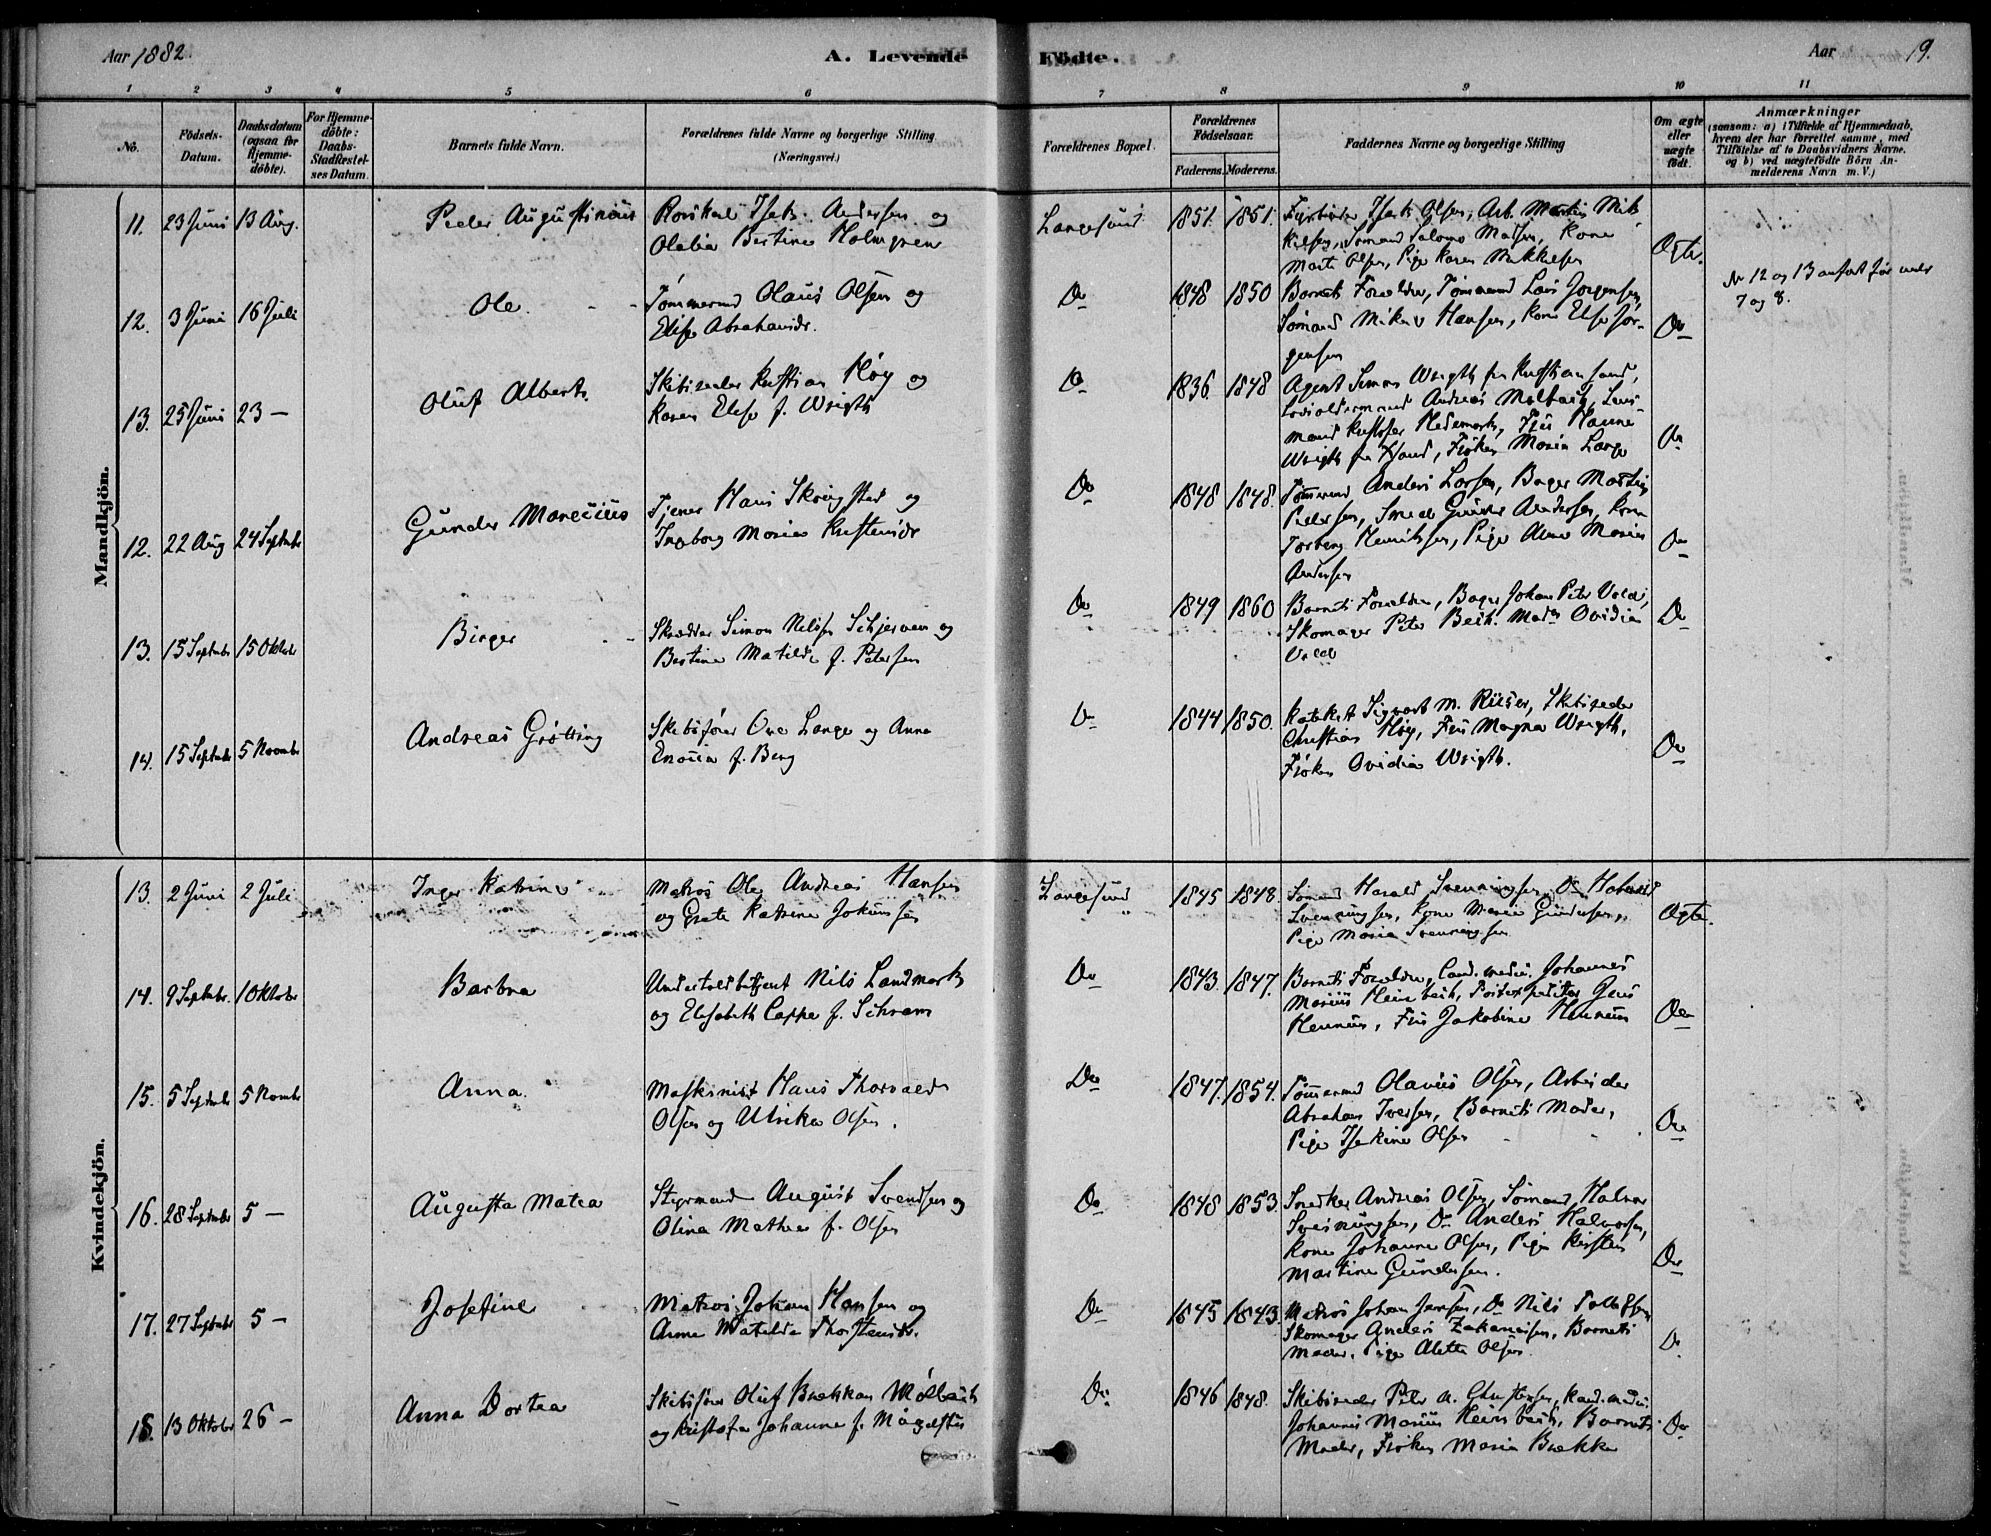 Aar 1882.
A. Levende
Födte.
Aar
19.
1 2 3 4 5 6 7 8 9 10 11
No.
Födsels-
Datum.
Daabsdatum
(ogsaa for
Hjemme-
döbte).
For Hjemme-
döbte:
Daabs-
Stadfæstel-
ses Datum.
Barnets fulde Navn.
Forældrenes fulde Navne og borgerlige Stilling
(Næringsvei.)
Forældrenes Bopæl.
Forældrenes
Födselsaar.
Faderens. Moderens.
Faddernes Navne og borgerlige Stilling
Om ægte
eller
uægte
födt.
Anmærkninger
(saasom: a) i Tilfælde af Hjemmedaab,
hvem der har forrettet samme, med
Tilföielse af to Daabsvidners Navne,
og b) ved uægtefödte Börn An-
melderens Navn m. V.)
Mandkjön.
11. 23 Juni 13 Aug. Peder Augustinius
Isak Andersen og
Olebia Bertine Holmgren
Langesund 1851. 1851.
Isak Olsen, Arb. Martin Mik-
kelsen, Sømand Salomo Madsen, Kone
Marte Olsen, Pige Karen Mikkelsen
Ægte.
12. 3 Juni 16 Juli Ole.
Tømmermd Olaus Olsen og
Elise Abrahamsdr.
Do 1848 1850
Barnets Forældre, Tømmermd Lars Jørgensen,
Sømand Mikael Hansen, Kone Else Jør-
gensen
Do
Nr 12 og 13 anført før under
7 og 8.
13. 25 Juni 23 — Oluf Albert.
Skibsreder Kristian Høy og
Karen Elise f. Wrigth
Do 1836 1848
Agent Simon Wrigth fra Kristiansand,
Lodsoldermand Andreas Molbach, Lens-
mand Kristofer Hedemark, Fru Hanne
Wrigth fra Xsand, Frøken Maria Lange
Do
12. 22 Aug 24 Septembr Gunder Marelius
Tjener Hans Skringstad og
Ingborg Marie Kristensdr
Do 1848 1848.
Tømmermd Anders Larsen, Bager Martin
Pedersen, Smed Gunder Andersen, Kone
Torberg Henriksen, Pige Anne Marie
Andersen
Do
13. 15 Septembr 15 Oktobr Birger
Skrædder Simon Nilsen Schjerven og
Bertine Matilde f. Petersen
Do 1849 1860
Barnets Forældre, Bager Johan Peter Vold,
Skomager Peter Bech. Madm Ovidia
Vold
Do
14. 15 Septembr 5 Novembr Andreas Grøtting
Skibsfører Ove Lange og Anna
Enovia f. Berg
Do 1844 1850.
Kateket Sigvart M. Riiser, Skibsreder
Christian Høy, Fru Magna Wrigth,
Frøken Ovidia Wrigth.
Do
Kvindekjön.
13. 2 Juni 2 Juli Inger Katrine
Matros Ole Andreas Hansen
og Grete Katrine Jokumsen
Langesund 1845 1848.
Sømand Harald Svenningsen, Do
Svenningsen, Kone Maria Gundersen,
Pige Maria Svenningsen
Ægte.
14. 9 Septembr. 1 Oktobr Barbra
Undertoldbetjent Nils Landmark
og Elisabeth Cappe f. Schram
Do 1843. 1847.
Barnets Forældre, Cand. medic. Johannes
Marius Heimbeck, Postexpeditør Jens
Henrum, Fru Jakobine Henrum
Do
15. 5 Septembr 5 Novembr Anna.
Maskinist Hans Thorvald
Olsen og Ulrika Olsen.
Do 1847. 1854.
Tømmermd Olaves Olsen, Arbeider
Abraham Iversen, Barnets Moder,
Pige Isekine Olsen
Do
16. 28 Septembr 5 — Augusta Matea
Styrmand August Svendsen og
Olina Mathea f. Olsen
Do 1848 1853.
Snedker Andreas Olsen, Sømand Halvor
Sveinungsen, Do Anders Halvorsen,
Kone Johanne Olsen, Pige Kirsten
Martine Gundersen.
Do
17. 27 Septembr 5 — Josefine
Matros Johan Hansen og
Anne Matilde Thorstensdr.
Do 1845 1843.
Matros Johan Jensen, Do Nils Tollefsen
Skomager Anders Zakariasen, Barnets
Moder, Pige Alette Olsen
Do
18. 13 Oktobr 26 — Anna Dortea
Skibsfører Oluf Bækkan Mølbach
og Kristofa Johanne f. Magelssen
Do 1846 1848.
Skibsreder Peter A. Christensen, Kand. medic.
Johannes Marius Heimbeck, Barnets
Moder, Frøken Maria Bække
Do